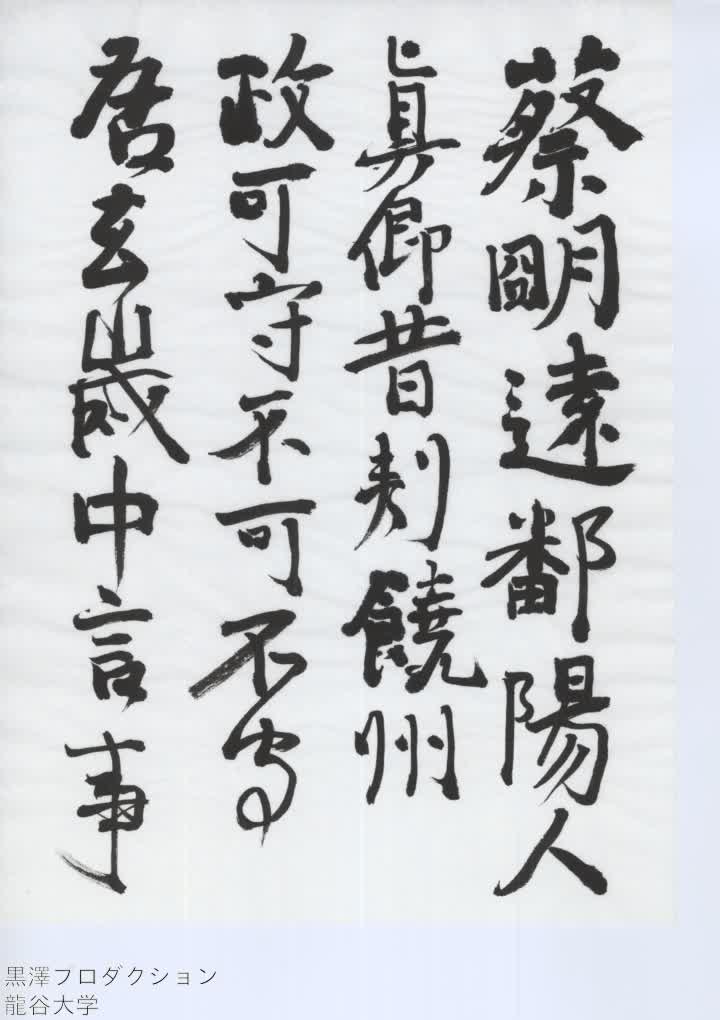 蔡明遠鄱陽人
真卿昔刺饒州
政可守不可不守
吾去歳中言事
黒澤プロダクション
龍谷大学